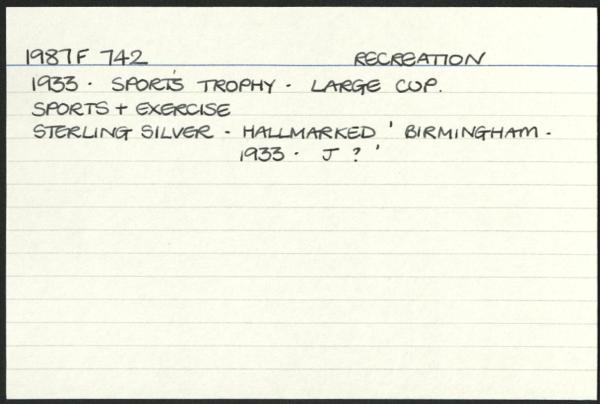 1987F 742 RECREATION
1933 · SPORT'S TROPHY · LARGE CUP.
SPORTS + EXERCISE
STERLING SILVER - HALLMARKED ' BIRMINGHAM ·
1933 · J ? '